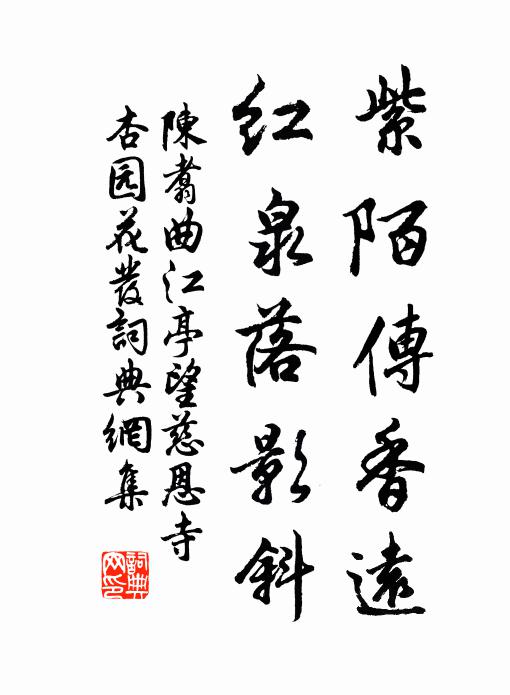 紫陌傳香遠
紅泉落影斜
陳翥曲江亭望慈恩寺
杏园花發詞典網集
詞典
网印